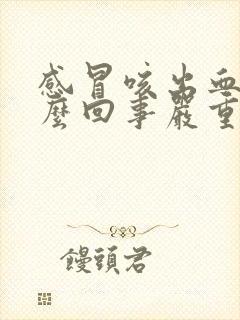 感冒咳出血
麼回事嚴重
饅頭君